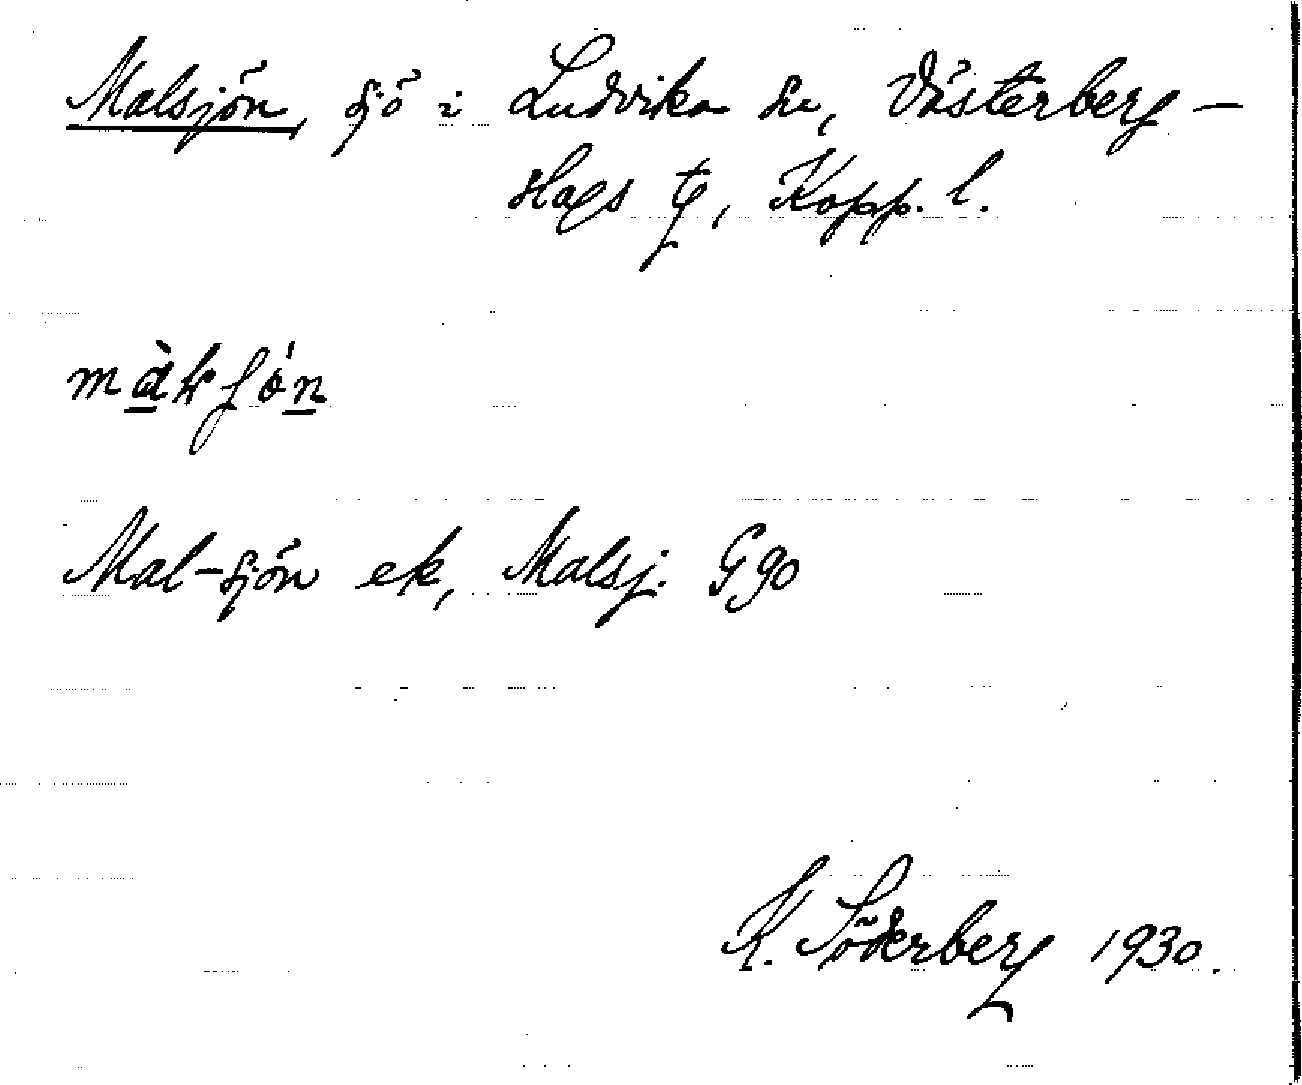 Malsjön, sjö i Ludvika sn, Västerberg-
slags tg, Kopp. l.
Mal-sjön ek, Malsj. G90
K. Söderberg 1930.